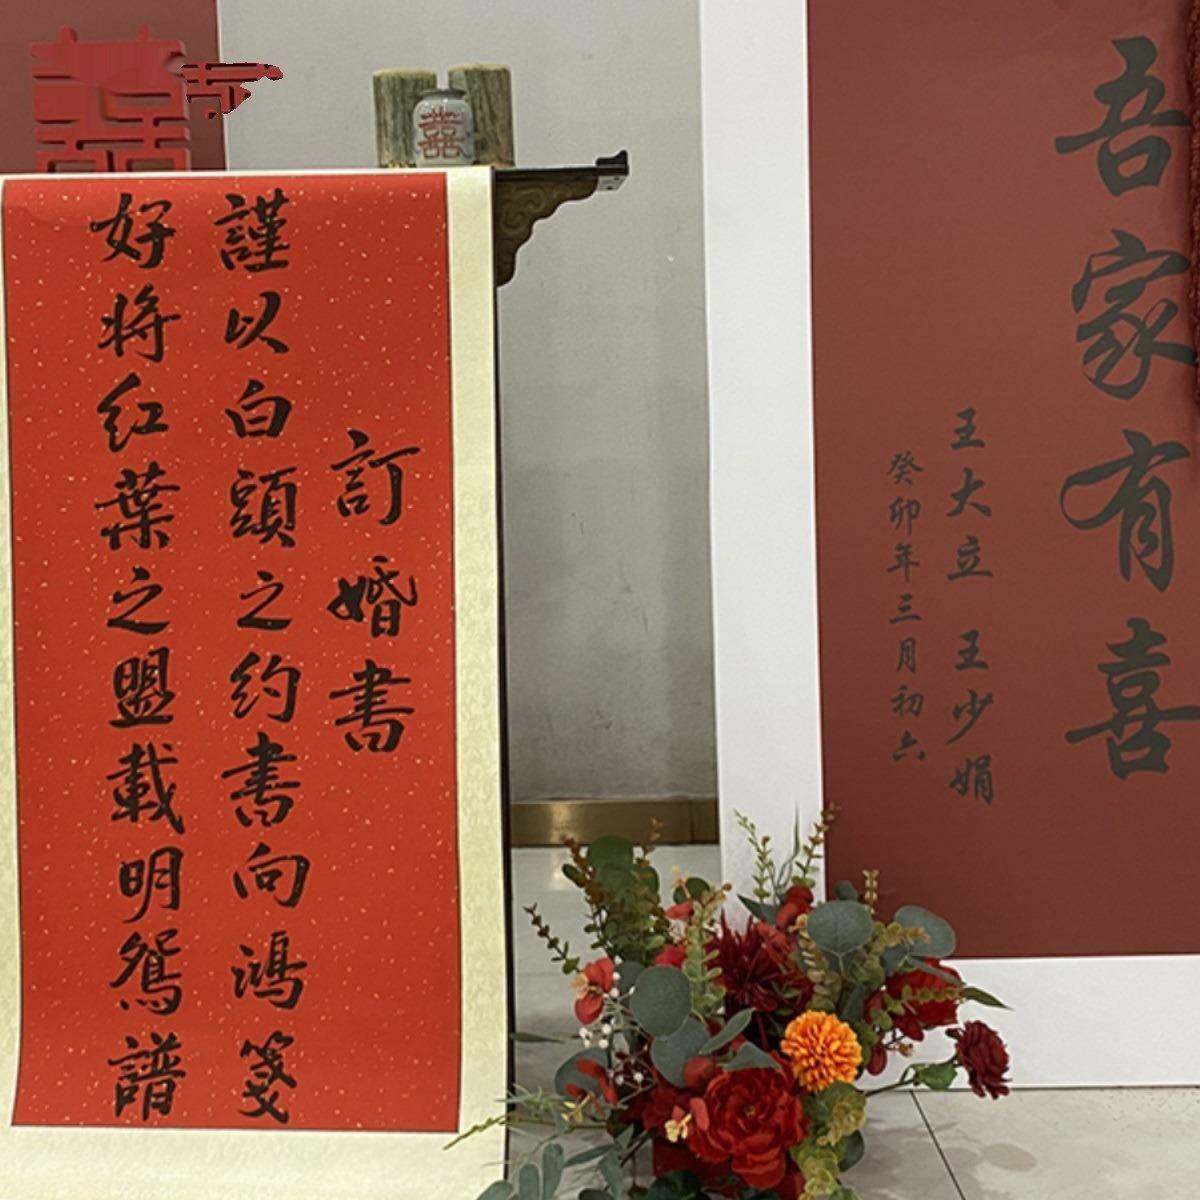 吾家有喜
王大立 王少娟
癸卯年三月初六
訂婚書
謹以白頭之約書向鴻箋
好將红葉之盟載明鴛譜
囍
囍